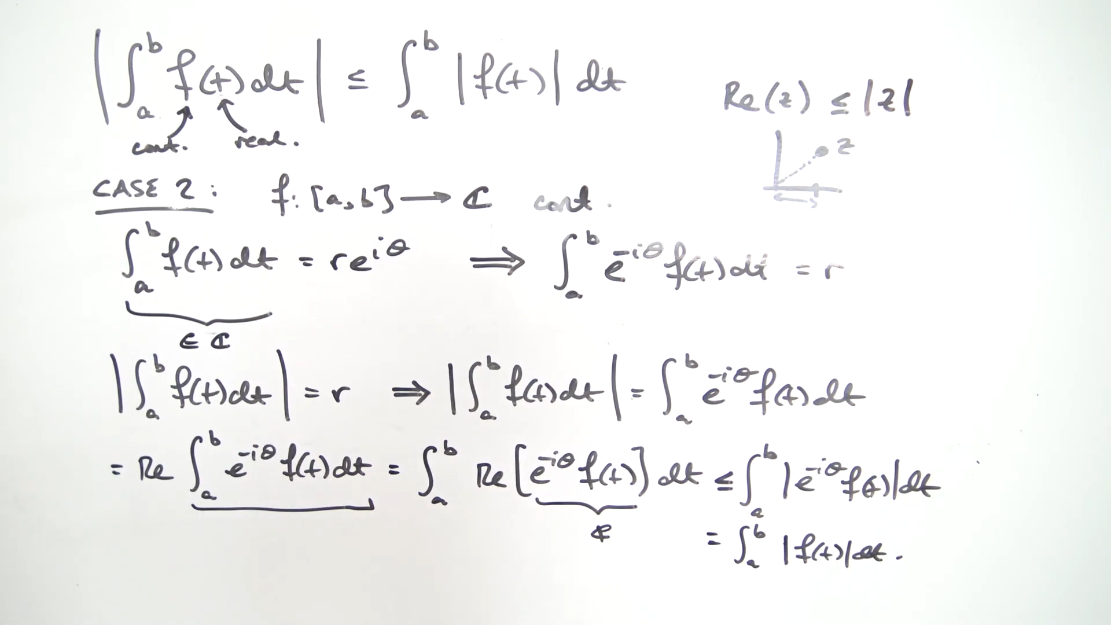 |∫_a^b f(t) dt| ≤ ∫_a^b |f(t)| dt
Re(z) ≤ |z|
cont. real.
z
CASE 2: f: [a,b] → ℂ cont.
∫_a^b f(t) dt = re^{iθ} ⟹ ∫_a^b e^{-iθ} f(t) dt = r
∈ ℂ
|∫_a^b f(t) dt| = r ⟹ |∫_a^b f(t) dt| = ∫_a^b e^{-iθ} f(t) dt
= Re ∫_a^b e^{-iθ} f(t) dt = ∫_a^b Re[e^{-iθ} f(t)] dt ≤ ∫_a^b |e^{-iθ} f(t)| dt
= ∫_a^b |f(t)| dt.